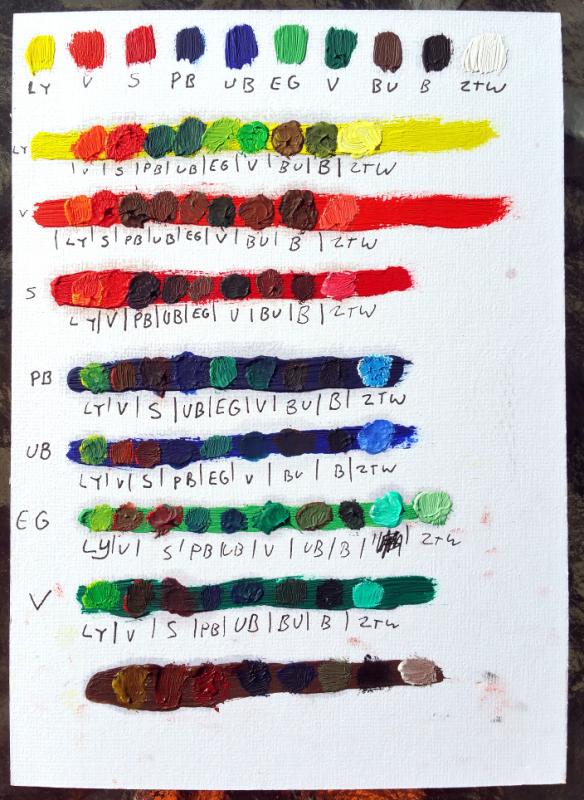 LY V S PB UB EG V BU B ZTW
LY
V | S | PB | UB | EG | V | BU | B | ZTW
V
| LY | S | PB | UB | EG | V | BU | B | ZTW
S
LY | V | PB | UB | EG | V | BU | B | ZTW
PB
LY | V | S | UB | EG | V | BU | B | ZTW
UB
LY | V | S | PB | EG | V | BU | B | ZTW
EG
LY | V | S | PB | UB | V | UB | B | ZTW
V
LY | V | S | PB | UB | BU | B | ZTW